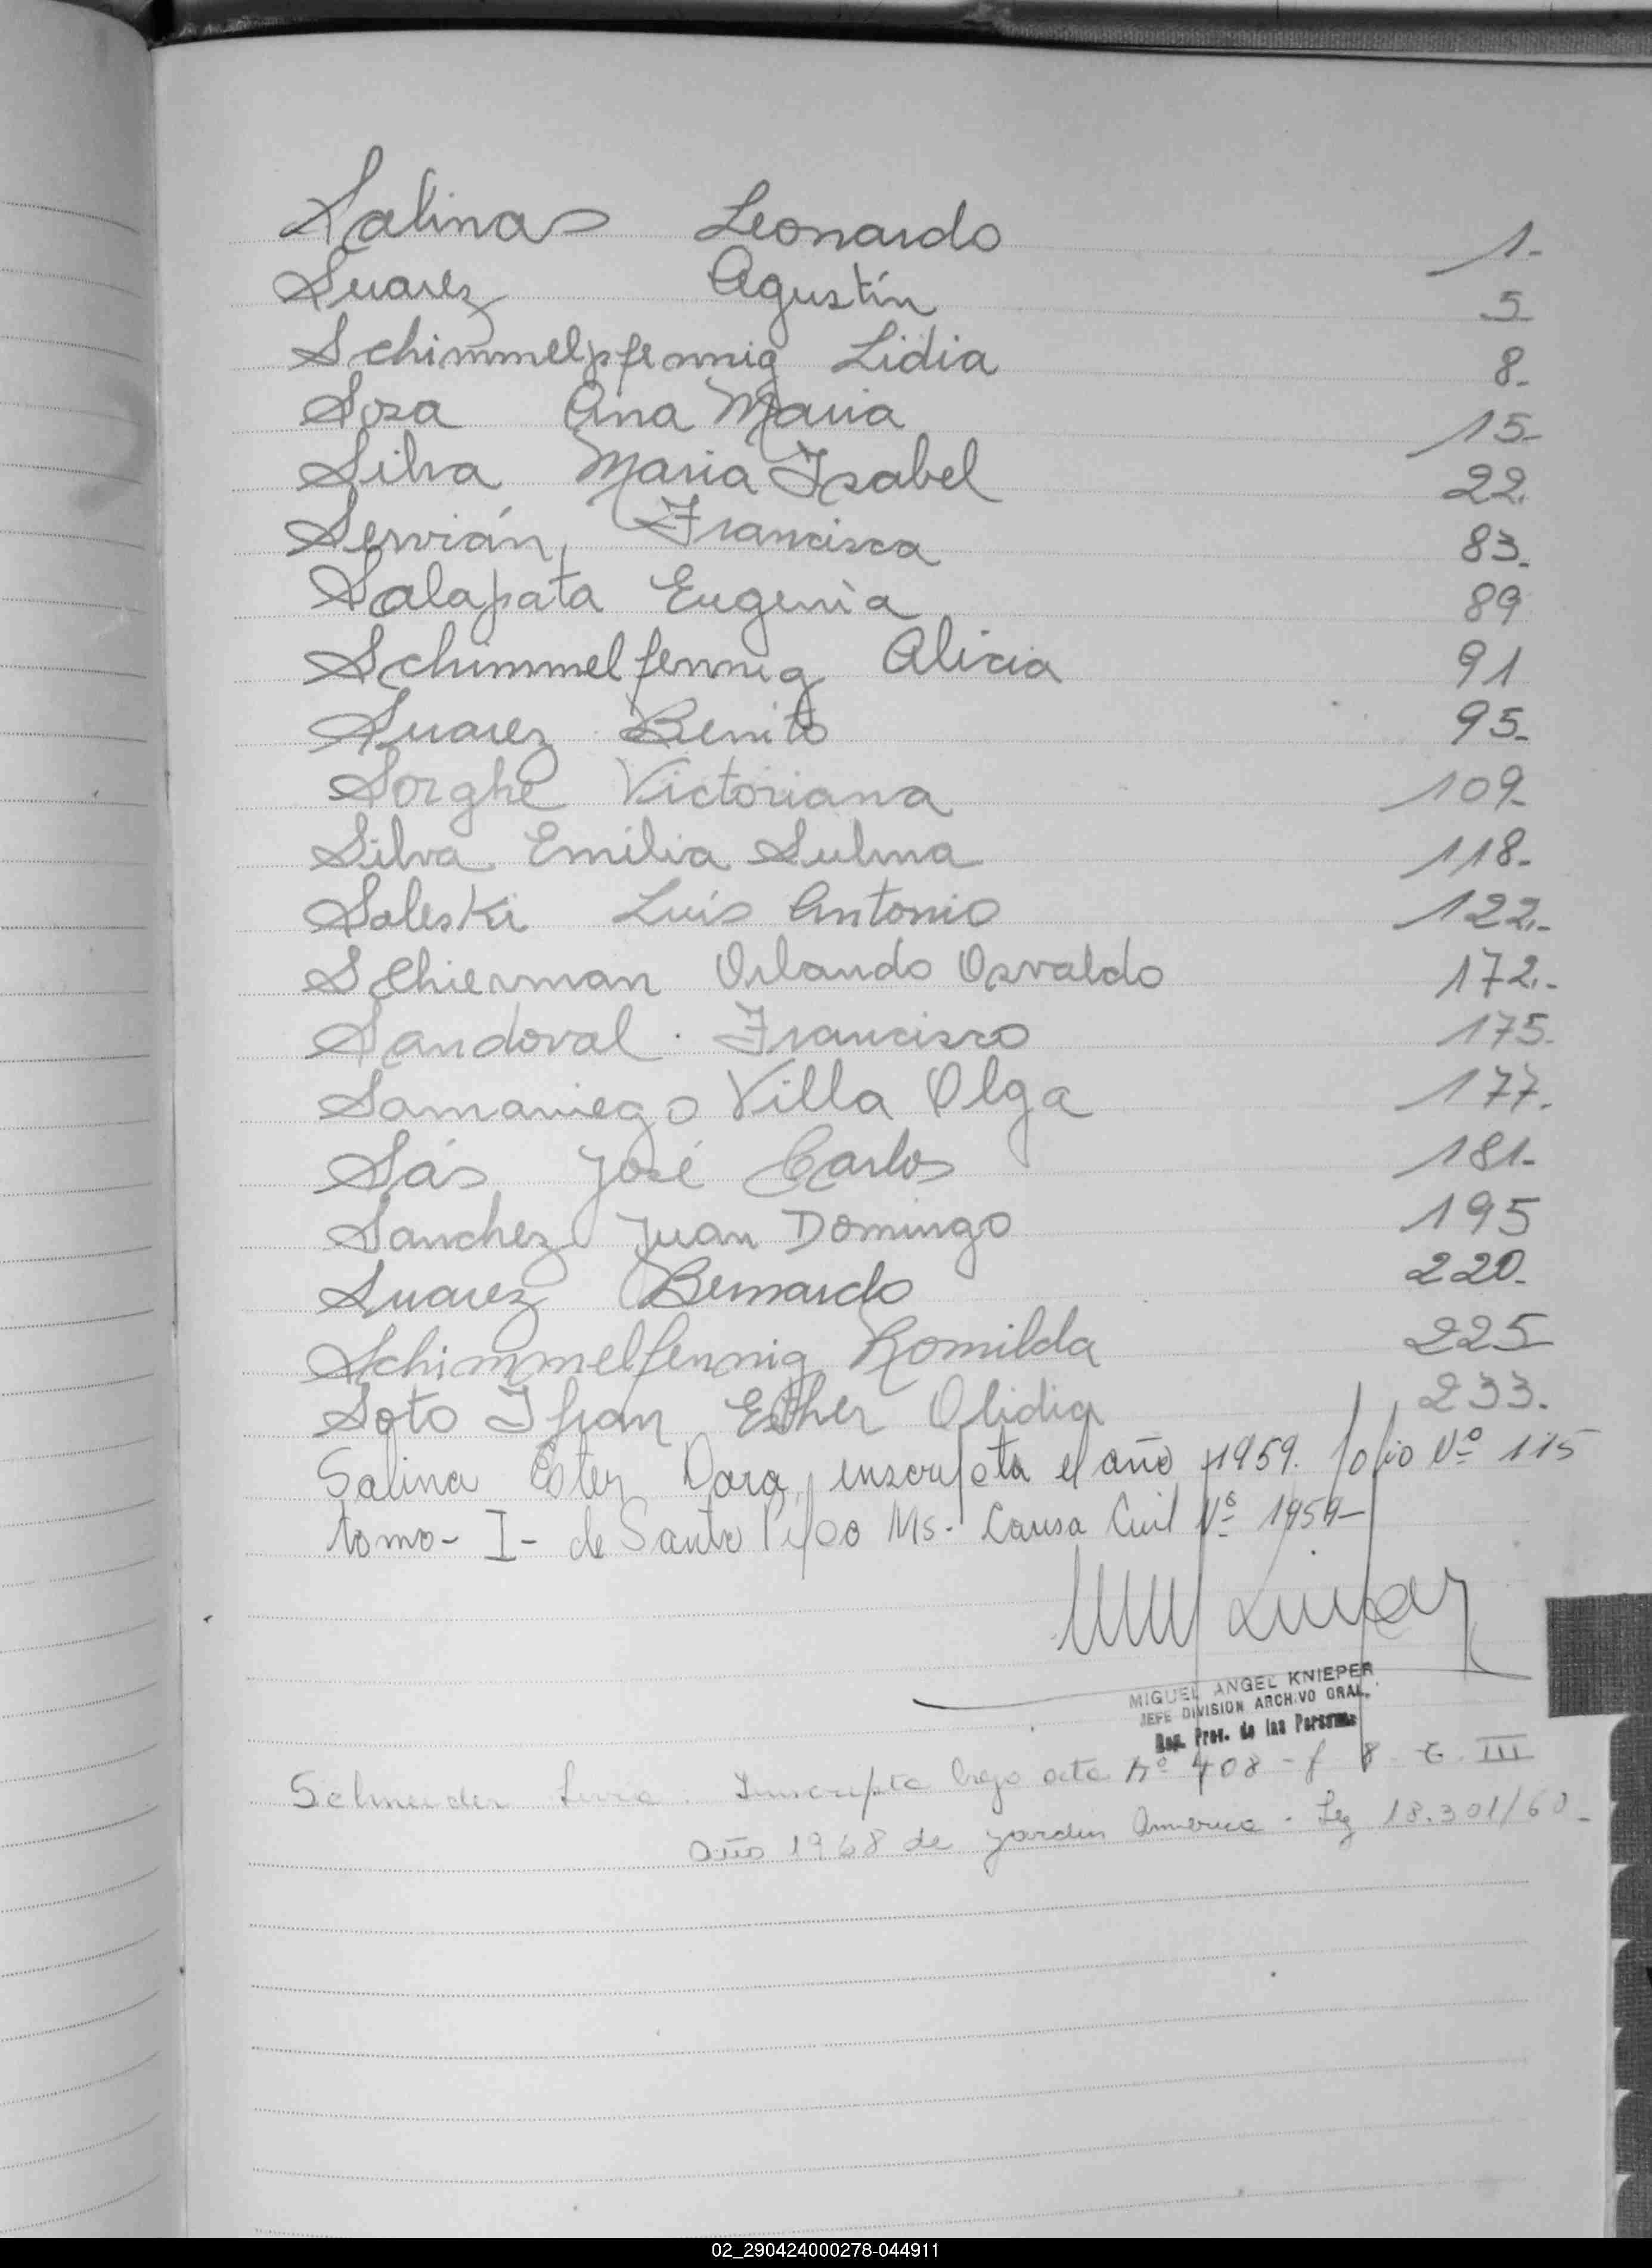 Salinas Leonardo 1.-
Suarez Agustín 5
Schimmelpfennig Lidia 8.
Sosa Ana Maria 15-
Silva Maria Isabel 22.
Servián, Francisca 83.
Salapata Eugenia 89
Schimmelfennig Alicia 91
Suarez Benito 95.
Sorghe Victoriana 109-
Silva Emilia Sulma 118.
Saleski Luis Antonio 122.-
SChierman Orlando Osvaldo 172.-
Sandoval. Francisco 175.
Samaniego Villa Olga 177.
Sás José Carlos 181-
Sanchez Juan Domingo 195
Suarez Bernardo 220.
Schimmelfennig Romilda 225
Soto Ifran Esther Olidia 233.
Salina Ester Dora, inscripta el año 1959. folio Nº 115
tomo- I- de Santo Pipo Ms- Causa Civil Nº 1959-
MIGUEL ANGEL KNIEPER
JEFE DIVISION ARCHIVO GRAL.
Reg. Prov. de las Personas
Schneider. Inscripta bajo acta Nº 408 - f 8 t. III
Año 1968 de Jardin America. Leg 18.301/60-
02_290424000278-044911